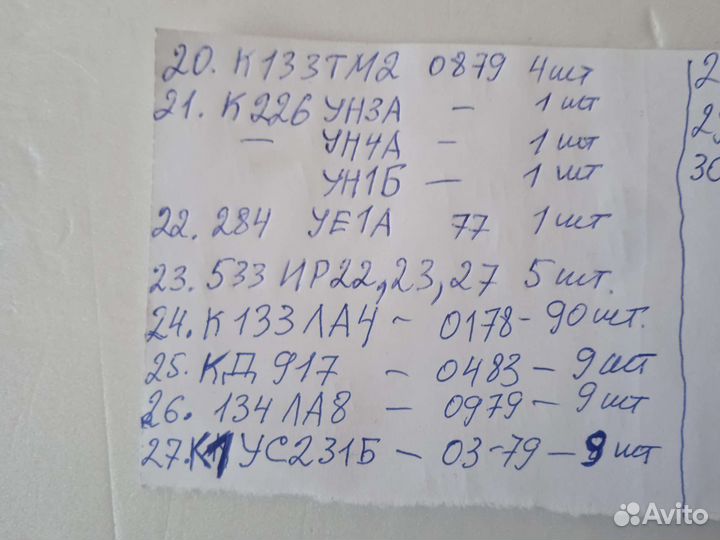 20. К133ТМ2 0879 4шт
21. К226 УН3А — 1 шт
— УН4А — 1 шт
УН1Б — 1 шт
22. 284 УЕ1А 77 1 шт
23. 533 ИР22,23,27 5 шт.
24. К133ЛА4 – 0178 – 90 шт.
25. КД 917 – 0483 – 9 шт
26. 134ЛА8 – 0979 – 9 шт
27. К1УС231Б – 03-79 – 9 шт
2
29
30
Avito